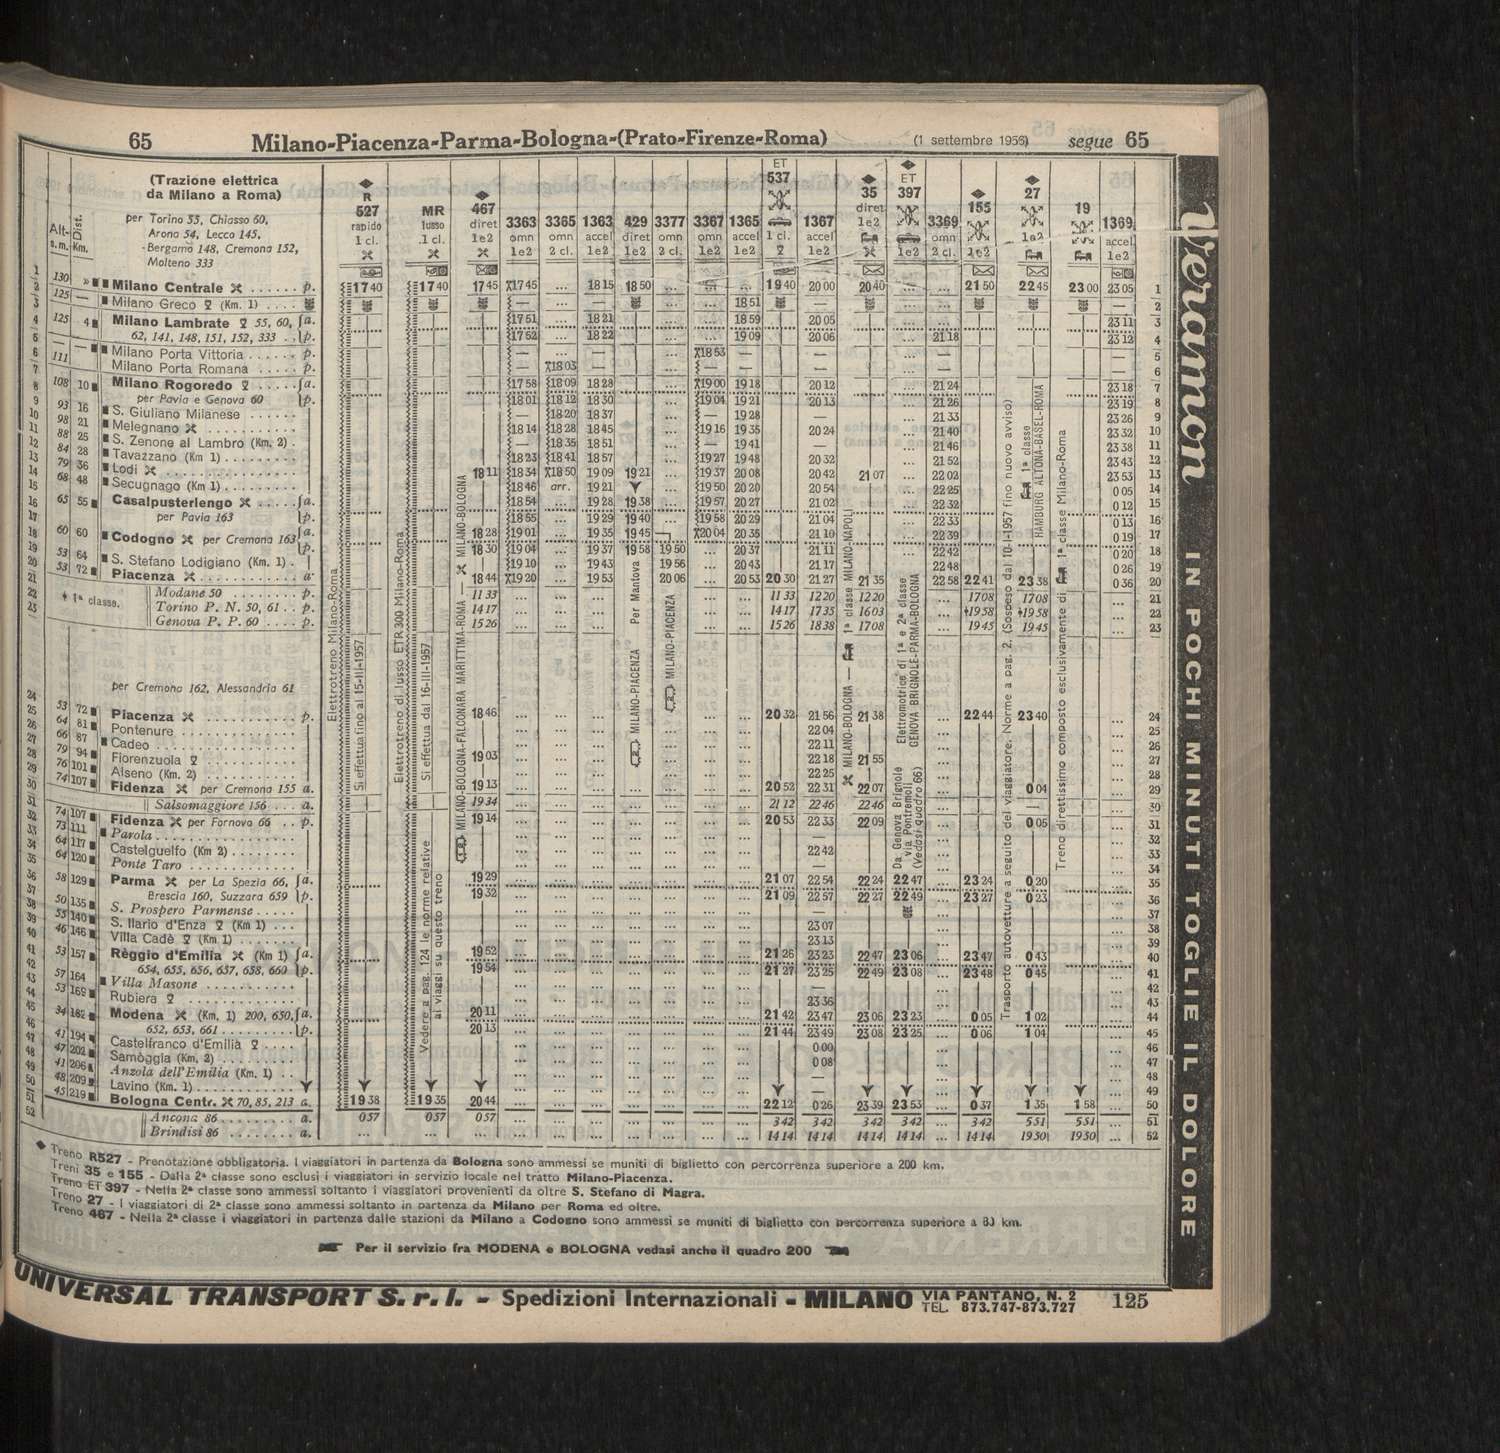 65 Milano-Piacenza-Parma-Bologna-(Prato-Firenze-Roma) (1 settembre 1956) segue 65
(Trazione elettrica
da Milano a Roma)
per Torino 53, Chiasso 60,
Arona 54, Lecco 145,
Bergamo 148, Cremona 152,
Molteno 333
Alt. s.m. Dist. Km.
R 527 rapido 1 cl.
MR lusso 1 cl.
467 diret 1e2
3363 omn 1e2
3365 omn 2 cl.
1363 accel 1e2
429 diret 1e2
3377 omn 2 cl.
3367 omn 1e2
1365 accel 1e2
ET 537 1 cl.
1367 accel 1e2
35 diret 1e2
ET 397 1e2
3369 omn 2 cl.
155 1e2
27 1e2
19
1369 accel 1e2
130 Milano Centrale p. 17 40 17 40 17 45 17 45 ... 18 15 18 50 ... ... 19 40 20 00 20 40 ... ... 21 50 22 45 23 00 23 05 1
125 — Milano Greco (Km. 1) 18 51 — 2
125 4 Milano Lambrate 55, 60, a. 17 51 ... 18 21 ... 18 59 20 05 23 11 3
62, 141, 148, 151, 152, 333 p. 17 52 ... 18 22 ... 19 09 20 06 21 18 23 12 4
Milano Porta Vittoria p. 18 53 5
111 Milano Porta Romana p. 18 03 6
108 10 Milano Rogoredo a. 17 58 18 09 18 28 19 00 19 18 20 12 21 24 23 18 7
per Pavia e Genova 60 p. 18 01 18 12 18 30 19 04 19 21 20 13 21 26 23 19 8
93 16 S. Giuliano Milanese — 18 20 18 37 — 19 28 — 21 33 23 26 9
98 21 Melegnano 18 14 18 28 18 45 19 16 19 35 20 24 21 40 23 32 10
88 25 S. Zenone al Lambro (Km. 2) — 18 35 18 51 — 19 41 — 21 46 23 38 11
84 28 Tavazzano (Km 1) 18 23 18 41 18 57 19 27 19 48 20 32 21 52 23 43 12
79 36 Lodi 18 11 18 34 18 50 19 09 19 21 19 37 20 08 20 42 21 07 22 02 23 53 13
68 48 Secugnago (Km 1) 18 46 arr. 19 21 19 50 20 20 20 54 22 25 0 05 14
65 55 Casalpusterlengo a. 18 54 ... 19 28 19 38 19 57 20 27 21 02 22 32 0 12 15
per Pavia 163 p. 18 55 ... 19 29 19 40 19 58 20 29 21 04 22 33 0 13 16
60 60 Codogno per Cremona 163 a. 18 28 19 01 ... 19 35 19 45 20 04 20 35 21 10 22 39 0 19 17
p. 18 30 19 04 ... 19 37 19 58 19 50 ... 20 37 21 11 22 42 0 20 18
53 64 S. Stefano Lodigiano (Km. 1) 19 10 ... 19 43 19 56 ... 20 43 21 17 22 48 0 26 19
53 72 Piacenza a. 18 44 19 20 ... 19 53 20 06 ... 20 53 20 30 21 27 21 35 22 58 22 41 23 38 0 36 20
1ª classe.
Modane 50 p. 11 33 11 33 12 20 12 20 17 08 17 08 21
Torino P. N. 50, 61 p. 14 17 14 17 17 35 16 03 19 58 19 58 22
Genova P. P. 60 p. 15 26 15 26 18 38 17 08 19 45 19 45 23
per Cremona 162, Alessandria 61
53 72 Piacenza p. 18 46 20 32 21 56 21 38 22 44 23 40 24
64 81 Pontenure 22 04 25
66 87 Cadeo 22 11 26
79 94 Fiorenzuola 19 03 22 18 21 55 27
76 101 Alseno (Km. 2) 22 25 28
74 107 Fidenza per Cremona 155 a. 19 13 20 52 22 31 22 07 0 04 29
Salsomaggiore 156 a. 19 34 21 12 22 46 22 46 30
74 107 Fidenza per Fornovo 66 p. 19 14 20 53 22 33 22 09 0 05 31
73 111 Parola 32
64 117 Castelguelfo (Km 2) 22 42 33
64 120 Ponte Taro — 34
58 129 Parma per La Spezia 66, a. 19 29 21 07 22 54 22 24 22 47 23 24 0 20 35
Brescia 160, Suzzara 659 p. 19 32 21 09 22 57 22 27 22 49 23 27 0 23 36
50 135 S. Prospero Parmense — 37
55 140 S. Ilario d'Enza (Km 1) 23 07 38
46 146 Villa Cadè (Km 1) 23 13 39
53 157 Règgio d'Emilia (Km 1) a. 19 52 21 26 23 23 22 47 23 06 23 47 0 43 40
654, 655, 656, 657, 658, 660 p. 19 54 21 27 23 25 22 49 23 08 23 48 0 45 41
57 164 Villa Masone — 42
53 169 Rubiera 23 36 43
34 182 Modena (Km. 1) 200, 650, a. 20 11 21 42 23 47 23 06 23 23 0 05 1 02 44
652, 653, 661 p. 20 13 21 44 23 49 23 08 23 25 0 06 1 04 45
41 194 Castelfranco d'Emilia 0 00 46
47 202 Samòggia (Km. 2) 0 08 47
41 206 Anzola dell'Emilia (Km. 1) — 48
48 209 Lavino (Km. 1) 49
45 219 Bologna Centr. 70, 85, 213 a. 19 38 19 35 20 44 22 12 0 26 23 39 23 53 0 37 1 35 1 58 50
Ancona 86 a. 0 57 0 57 0 57 3 42 3 42 3 42 3 42 3 42 5 51 5 51 51
Brindisi 86 a. ... ... ... 14 14 14 14 14 14 14 14 14 14 19 50 19 50 52
Elettrotreno Milano-Roma
Si effettua fino al 15-III-1957
Elettrotreno di lusso ETR 300 Milano-Roma
Si effettua dal 16-III-1957
Vedere a pag. 124 le norme relative
ai viaggi su questo treno
MILANO-BOLOGNA-FALCONARA MARITTIMA-ROMA — MILANO-BOLOGNA
MILANO-PIACENZA Per Mantova
MILANO-PIACENZA
MILANO-BOLOGNA — 1ª classe MILANO-NAPOLI
Da Genova Brignole
via Pontremoli
(Vedasi quadro 66)
Elettromotrice di 1ª e 2ª classe
GENOVA BRIGNOLE-PARMA-BOLOGNA
Trasporto autovetture a seguito del viaggiatore. Norme a pag. 2. (Sospeso dal 10-I-1957 fino nuovo avviso)
1ª classe
HAMBURG ALTONA-BASEL-ROMA
Treno direttissimo composto esclusivamente di 1ª classe Milano-Roma
Treno R527 - Prenotazione obbligatoria. I viaggiatori in partenza da Bologna sono ammessi se muniti di biglietto con percorrenza superiore a 200 km.
Treni 35 e 155 - Dalla 2ª classe sono esclusi i viaggiatori in servizio locale nel tratto Milano-Piacenza.
Treno ET 397 - Nella 2ª classe sono ammessi soltanto i viaggiatori provenienti da oltre S. Stefano di Magra.
Treno 27 - I viaggiatori di 2ª classe sono ammessi soltanto in partenza da Milano per Roma ed oltre.
Treno 467 - Nella 2ª classe i viaggiatori in partenza dalle stazioni da Milano a Codogno sono ammessi se muniti di biglietto con percorrenza superiore a 80 km.
Per il servizio fra MODENA e BOLOGNA vedasi anche il quadro 200
UNIVERSAL TRANSPORT S. r. l. - Spedizioni Internazionali - MILANO VIA PANTANO, N. 2
TEL. 873.747-873.727 125
Veramon IN POCHI MINUTI TOGLIE IL DOLORE